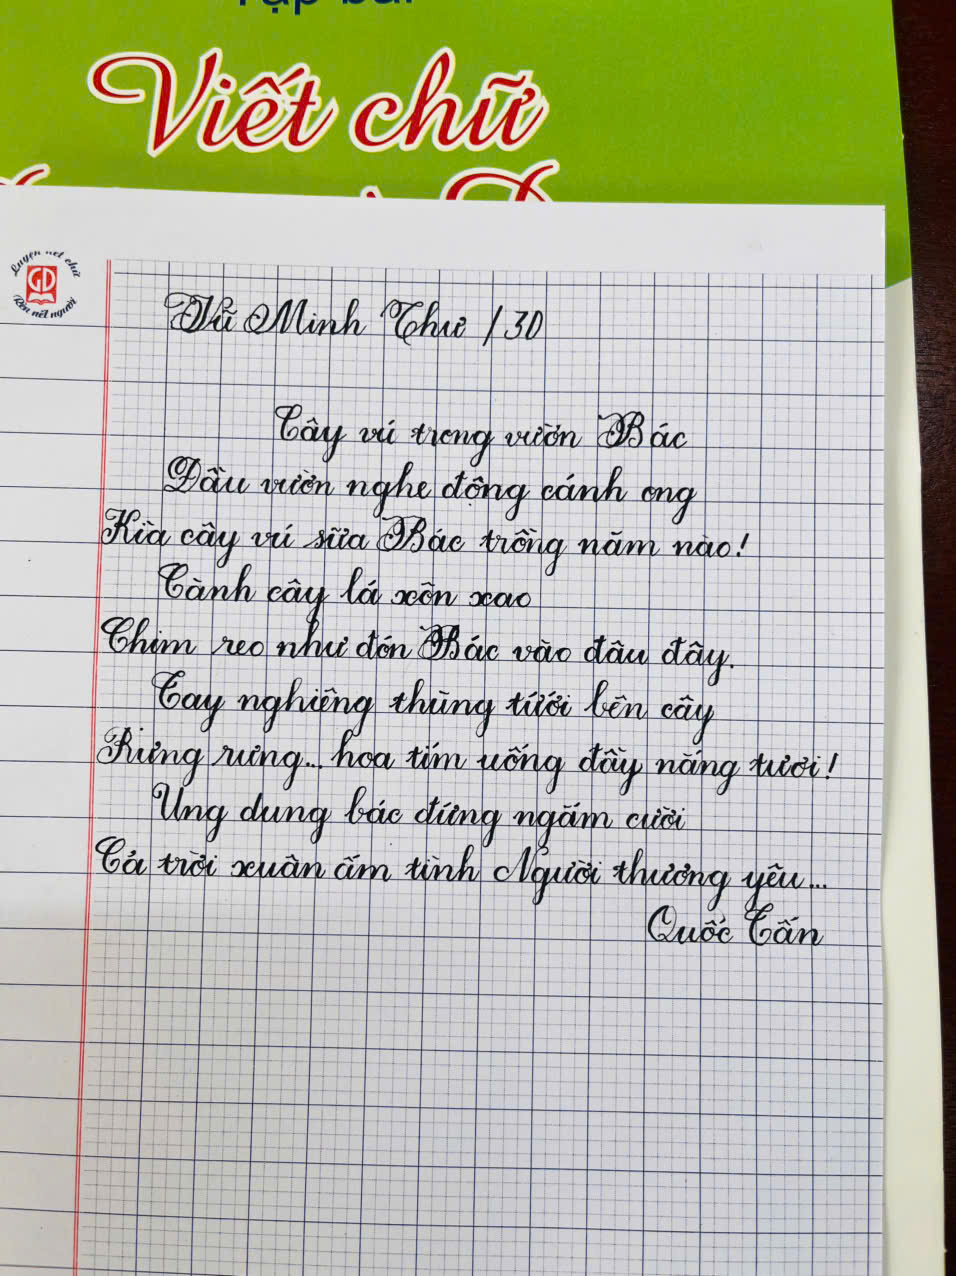 Tập bài
Viết chữ
Luyện nét chữ
GD
Rèn nết người
Vũ Minh Thư / 30
Cây vú trong vườn Bác
Đầu vườn nghe động cánh ong
Kìa cây vú sữa Bác trồng năm nào!
Cành cây lá xôn xao
Chim reo như đón Bác vào đâu đây.
Tay nghiêng thùng tưới bên cây
Rưng rưng... hoa tím uống đầy nắng tươi!
Ung dung bác đứng ngắm cười
Cả trời xuân ấm tình Người thương yêu...
Quốc Tấn